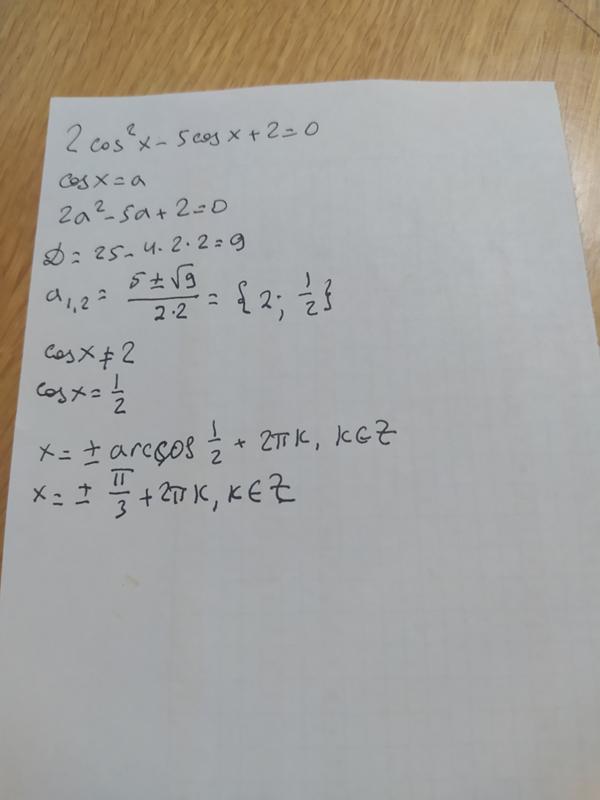 2 cos²x - 5 cos x + 2 = 0
cos x = a
2a² - 5a + 2 = 0
D = 25 - 4 · 2 · 2 = 9
a₁,₂ = (5 ± √9)/(2·2) = {2; 1/2}
cos x ≠ 2
cos x = 1/2
x = ± arccos 1/2 + 2πk, k ∈ Z
x = ± π/3 + 2πk, k ∈ Z